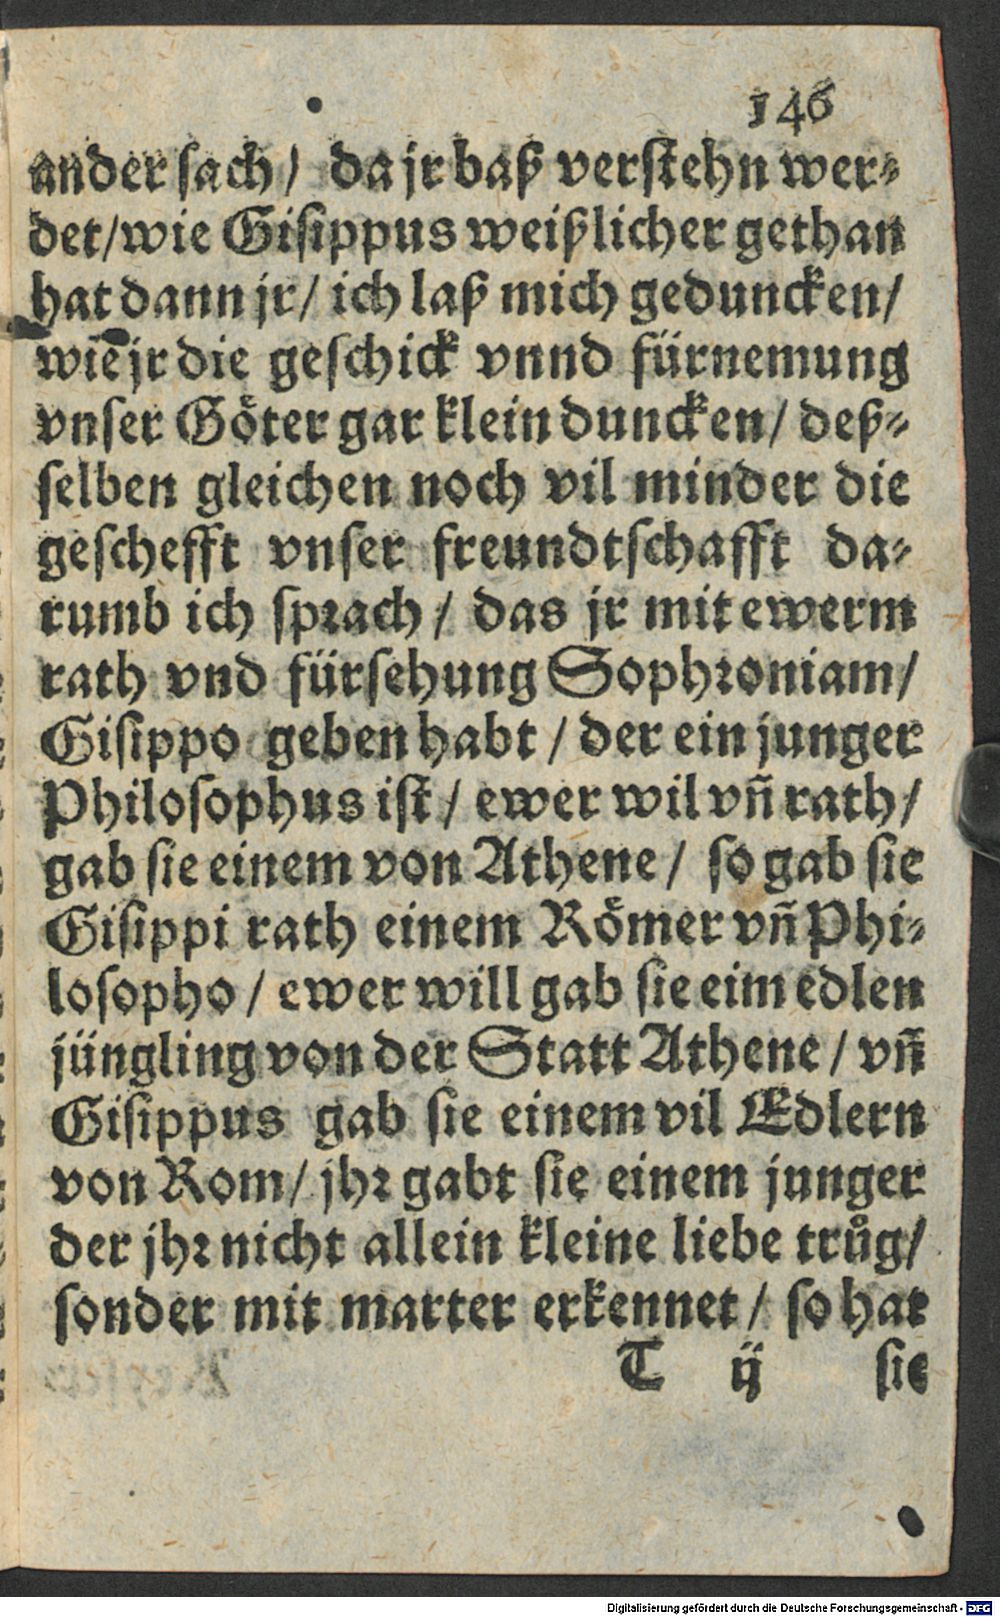 146
ander sach / da jr baß verstehn wer⸗
det / wie Gisippus weißlicher gethan
hat dann jr / ich laß mich geduncken /
wie jr die geschick vnnd fürnemung
vnser Göter gar klein duncken / deß⸗
selben gleichen noch vil minder die
geschefft vnser freundtschafft da⸗
rumb ich sprach / das jr mit ewerm
rath vnd fürsehung Sophroniam /
Gisippo geben habt / der ein junger
Philosophus ist / ewer wil vñ rath /
gab sie einem von Athene / so gab sie
Gisippi rath einem Römer vñ Phi⸗
losopho / ewer will gab sie eim edlen
jüngling von der Statt Athene / vñ
Gisippus gab sie einem vil Edlern
von Rom / jhr gabt sie einem junger
der jhr nicht allein kleine liebe trůg /
sonder mit marter erkennet / so hat
T ij sie
Digitalisierung gefördert durch die Deutsche Forschungsgemeinschaft - DFG